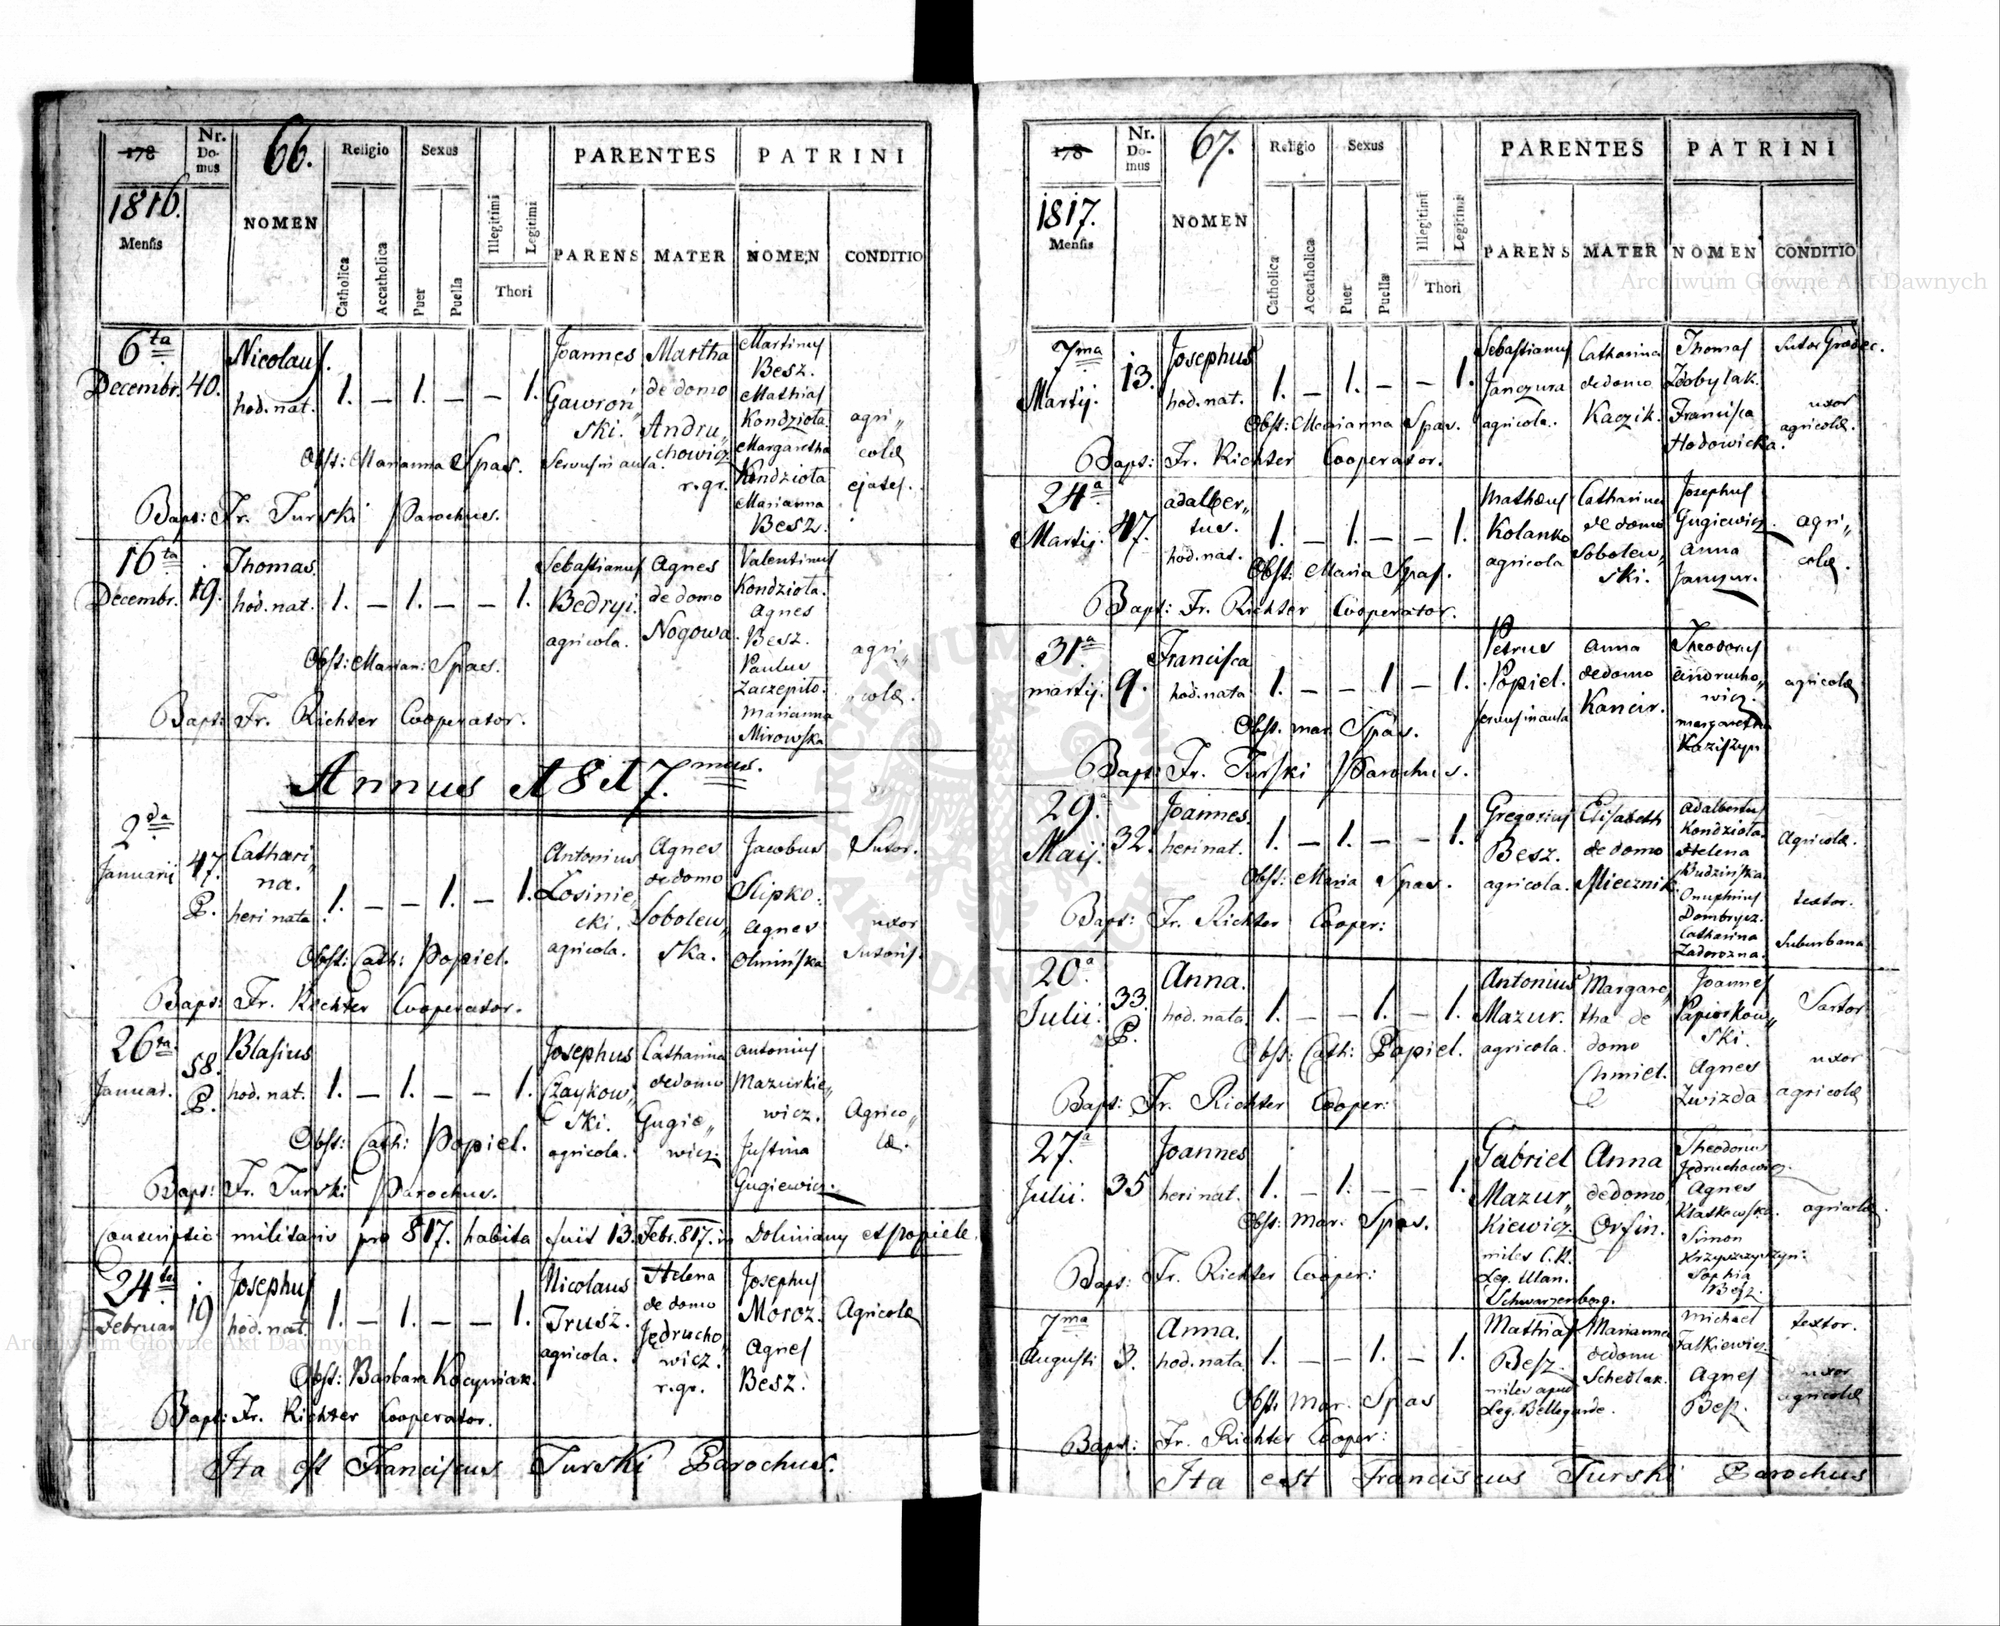 66.
178
Nr. Domus
Religio
Sexus
PARENTES
PATRINI
1816.
Mensis
NOMEN
Catholica
Accatholica
Puer
Puella
Illegitimi
Legitimi
Thori
PARENS
MATER
NOMEN
CONDITIO
6ta
Decembr.
40.
Nicolaus.
hod. nat.
1. — 1. — — 1.
Joannes
Gawroń
ski.
Servus in aula.
Martha
de domo
Andru„
chowicz
r. gr.
Martinus
Besz.
Mathias
Kondziola.
Margaretha
Kondziola
Marianna
Besz.
agri„
colæ
ejates.
Obst: Marianna Spas.
Bapt: Fr. Turski Parochus.
16ta
Decembr.
19.
Thomas.
hod. nat.
1. — 1. — — 1.
Sebastianus
Bedryi.
agricola.
Agnes
de domo
Nogowa.
Valentinus
Kondziola.
Agnes
Besz.
Paulus
Zaczepilo.
Marianna
Mirowska
agri„
„colæ.
Obst: Marian: Spas.
Bapt: Fr. Richter Cooperator.
Annus 1817.mus.
2da
Januarii
47.
P.
Cathari„
na.
heri nata
1. — — 1. — 1.
Antonius
Losinie„
cki.
agricola.
Agnes
de domo
Sobolew„
ska.
Jacobus
Slipko.
Agnes
Olminska
Sutor.
uxor
Sutoris.
Obst: Cath: Popiel.
Bapt: Fr. Richter Cooperator.
26ta
Januar.
58.
P.
Blasius
hod. nat.
1. — 1. — — 1.
Josephus
Czaykow„
ski.
agricola.
Catharina
de domo
Gugie„
wicz.
Antonius
Mazurkie„
wicz.
Justina
Gugiewicz.
Agrico„
læ.
Obst: Cath: Popiel.
Bapt: Fr. Turski Parochus.
Conscriptio militaris pro 817. habita fuit 13. Febr. 817. in Doliniany et Popiele.
24ta
Februar.
19
Josephus
hod. nat.
1. — 1. — — 1.
Nicolaus
Trusz.
agricola.
Helena
de domo
Jędrucho„
wicz.
r. gr.
Josephus
Moroz.
Agnes
Besz.
Agricolæ
Obst: Barbara
Bapt: Fr. Richter Cooperator.
Ita est Franciscus Turski Parochus.
67.
178
Nr. Domus
Religio
Sexus
PARENTES
PATRINI
1817.
Mensis
NOMEN
Catholica
Accatholica
Puer
Puella
Illegitimi
Legitimi
Thori
PARENS
MATER
NOMEN
CONDITIO
7ma
Martij.
13.
Josephus
hod. nat.
1. — 1. — — 1.
Sebastianus
Janczura
agricola.
Catharina
de domo
Kaczik.
Thomas
Zdobylak.
Francisca
Hodowicka.
Sutor Grodec.
uxor
agricolæ.
Obst: Marianna Spas.
Bapt: Fr. Richter Cooperator.
24a
Martij.
47.
Adalber„
tus.
hod. nat.
1. — 1. — — 1.
Mathæus
Kolanko
agricola
Catharina
de domo
Sobolew„
ski.
Josephus
Gugiewicz.
Anna
Janczur.
agri„
colæ.
Obst: Maria Spas.
Bapt: Fr. Richter Cooperator.
31a
Martij.
9.
Francisca
hod. nata
1. — — 1 — 1.
Petrus
Popiel.
servus in aula
Anna
de domo
Kancir.
Theodorus
Andrucho„
wicz
Margaretha
agricolæ
Obst. Mar. Spas.
Bapt: Fr. Turski Parochus.
29.a
Maij.
32.
Joannes.
heri nat.
1. — 1. — — 1.
Gregorius
Besz.
agricola.
Elisabeth
de domo
Miecznik.
Adalbertus
Kondziola.
Helena
Budzińska.
Onuphrius
Dombrycz.
Catharina
Zadorozna.
Agricolæ.
textor.
Suburbana
Obst: Maria Spas.
Bapt: Fr. Richter Cooper:
20a
Julii.
33.
P.
Anna.
hod. nata.
1. — — 1. — 1.
Antonius
Mazur.
agricola.
Margare„
tha de
domo
Chmiel.
Joannes
Papiorkow„
ski.
Agnes
Zwizda
Sartor.
uxor
agricolæ
Obst: Cath: Popiel.
Bapt: Fr. Richter Cooper:
27.a
Julii.
35
Joannes
heri nat.
1. — 1. — — 1.
Gabriel
Mazur„
kiewicz.
miles C. R.
Leg. Ulan.
Schwarzenberg.
Anna
de domo
Orfin.
Theodorus
Jędruchowicz.
Agnes
Simon
Sophia
Besz.
agricolæ.
Obst: Mar: Spas.
Bapt: Fr. Richter Cooper:
7ma
Augusti
3.
Anna.
hod. nata.
1. — — 1. — 1.
Mathias
Besz.
miles apud
Leg. Bellegarde.
Marianna
de domo
Schedlak.
Michael
Falkiewicz.
Agnes
Besz.
textor.
uxor
agricolæ
Obst. Mar. Spas
Bapt: Fr. Richter Cooper:
Ita est Franciscus Turski Parochus
Archiwum Główne Akt Dawnych
Archiwum Główne Akt Dawnych